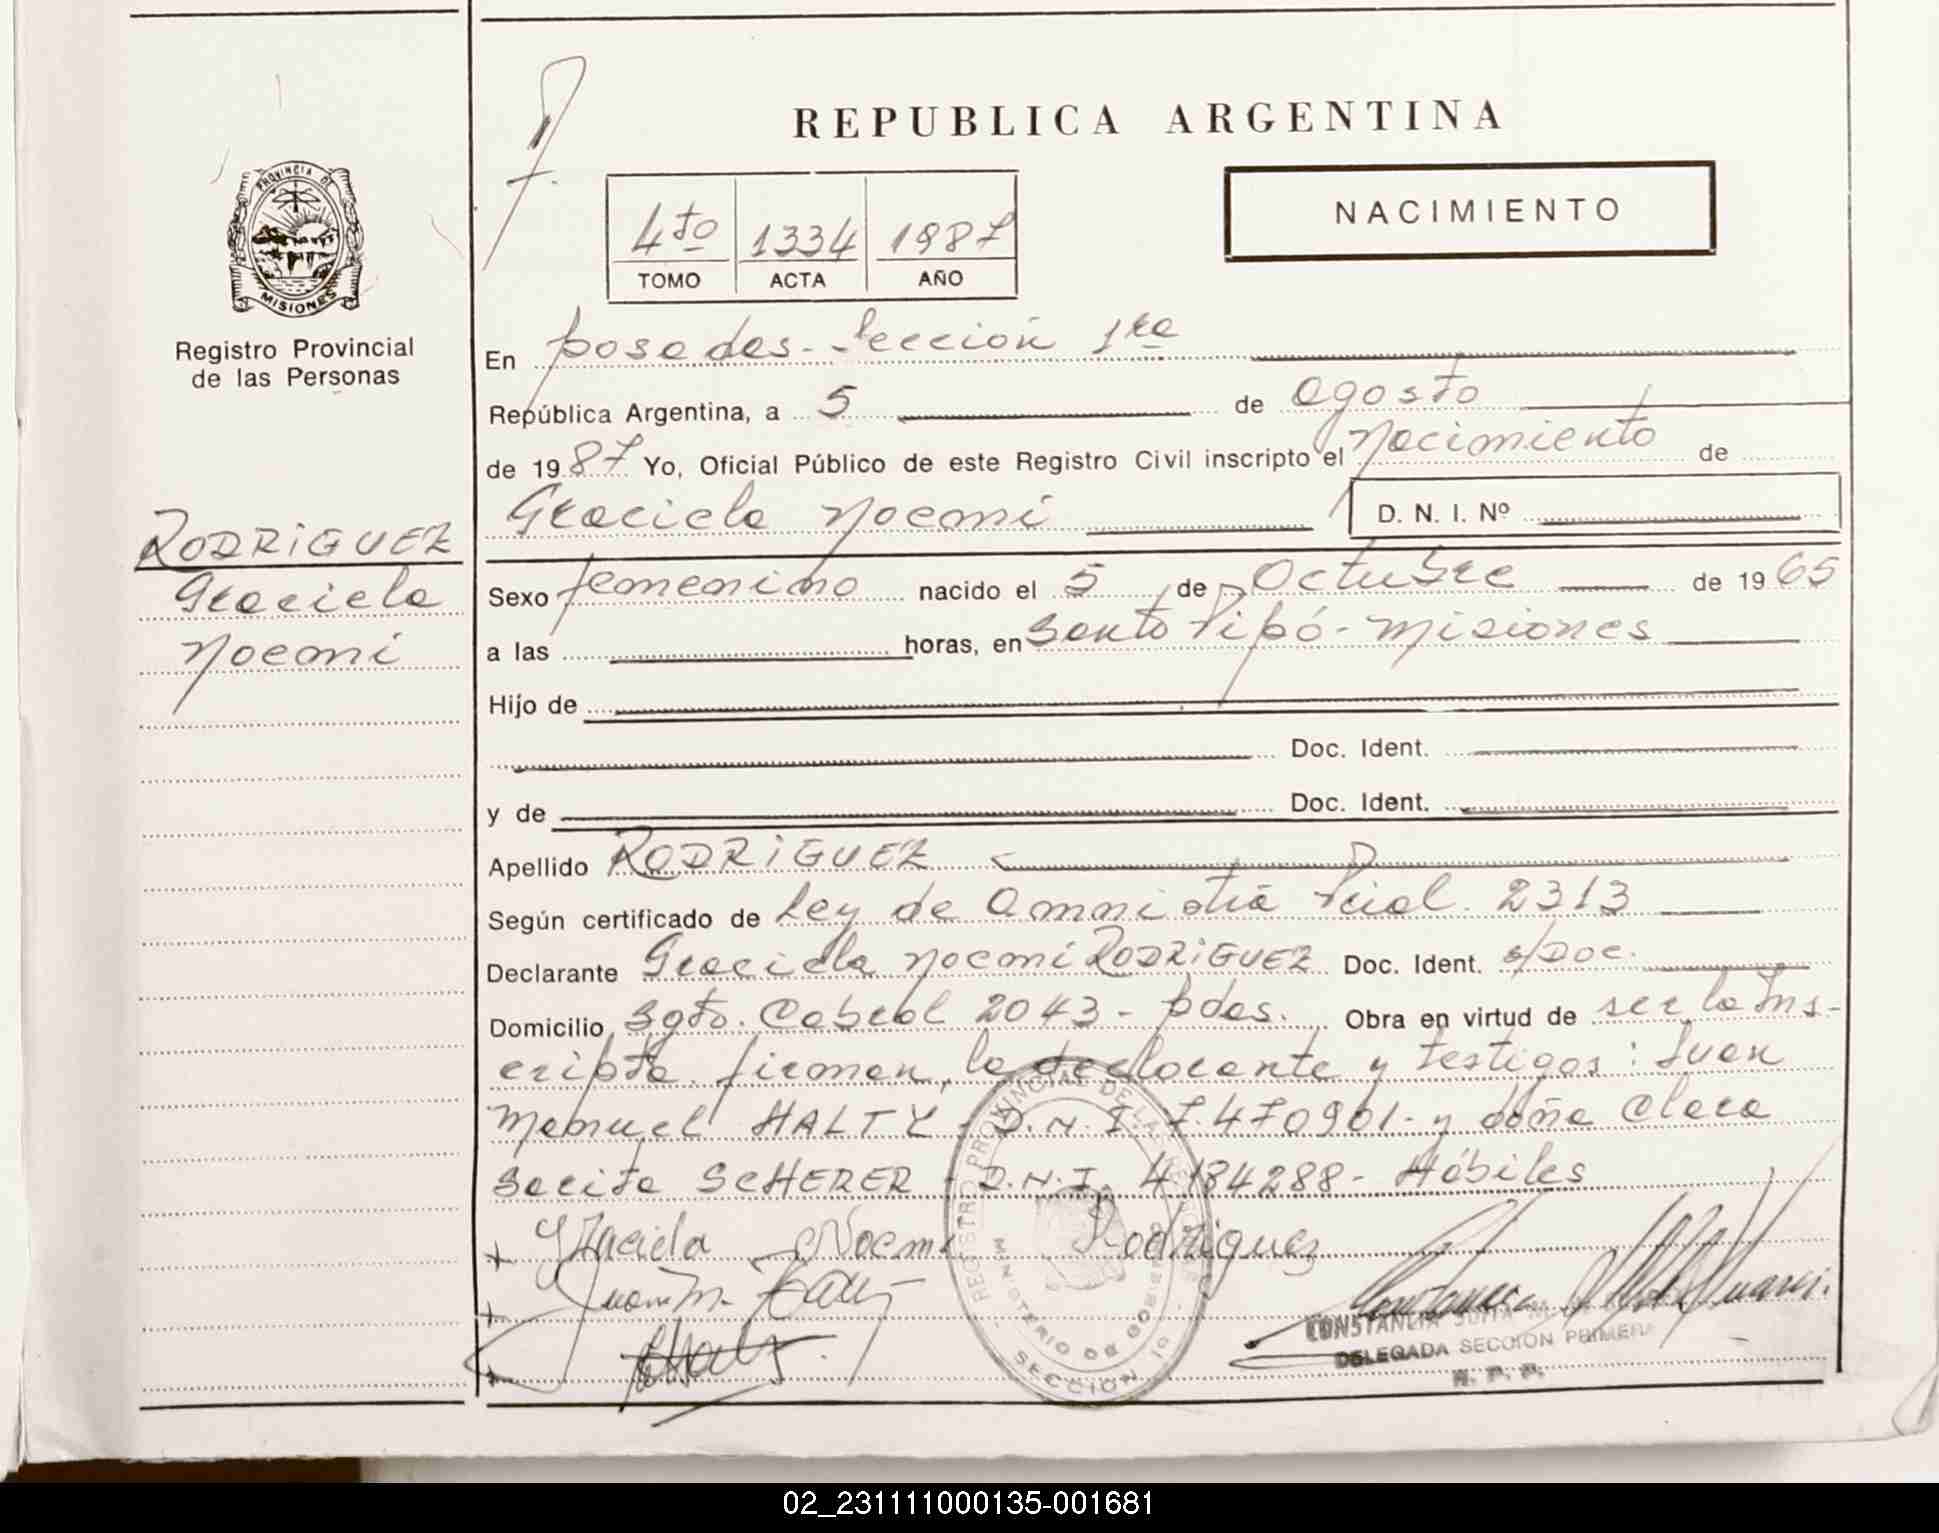 REPUBLICA ARGENTINA
NACIMIENTO
4to 1334 1987
TOMO ACTA AÑO
PROVINCIA DE
MISIONES
Registro Provincial
de las Personas
RODRIGUEZ
Graciela
Noemi
En Posadas - Sección 1ra
República Argentina, a 5 de agosto
de 1987 Yo, Oficial Público de este Registro Civil inscripto el Nacimiento de
Graciela Noemi D. N. I. Nº
Sexo femenino nacido el 5 de Octubre de 1965
a las horas, en Santo Pipó - Misiones
Hijo de
Doc. Ident.
y de Doc. Ident.
Apellido RODRIGUEZ
Según certificado de Ley de Amnistía Pcial. 2313
Declarante Graciela Noemi RODRIGUEZ Doc. Ident. s/Doc.
Domicilio Sgto. Cabral 2043 - Pdas. Obra en virtud de ser la Ins-
cripta. firman, la declarante y testigos: Juan
Manuel HALTY - D.N.I. 7.470901 - y doña Clara
Sarita SCHERER - D.N.I. 4184288 - Hábiles
Graciela Noemi Rodriguez
Juan M.
REGISTRO PROVINCIAL DE LAS PERSONAS
MINISTERIO DE GOBIERNO
SECCION 1º
CONSTANCIA
DELEGADA SECCION PRIMERA
R. P. P.
02_231111000135-001681